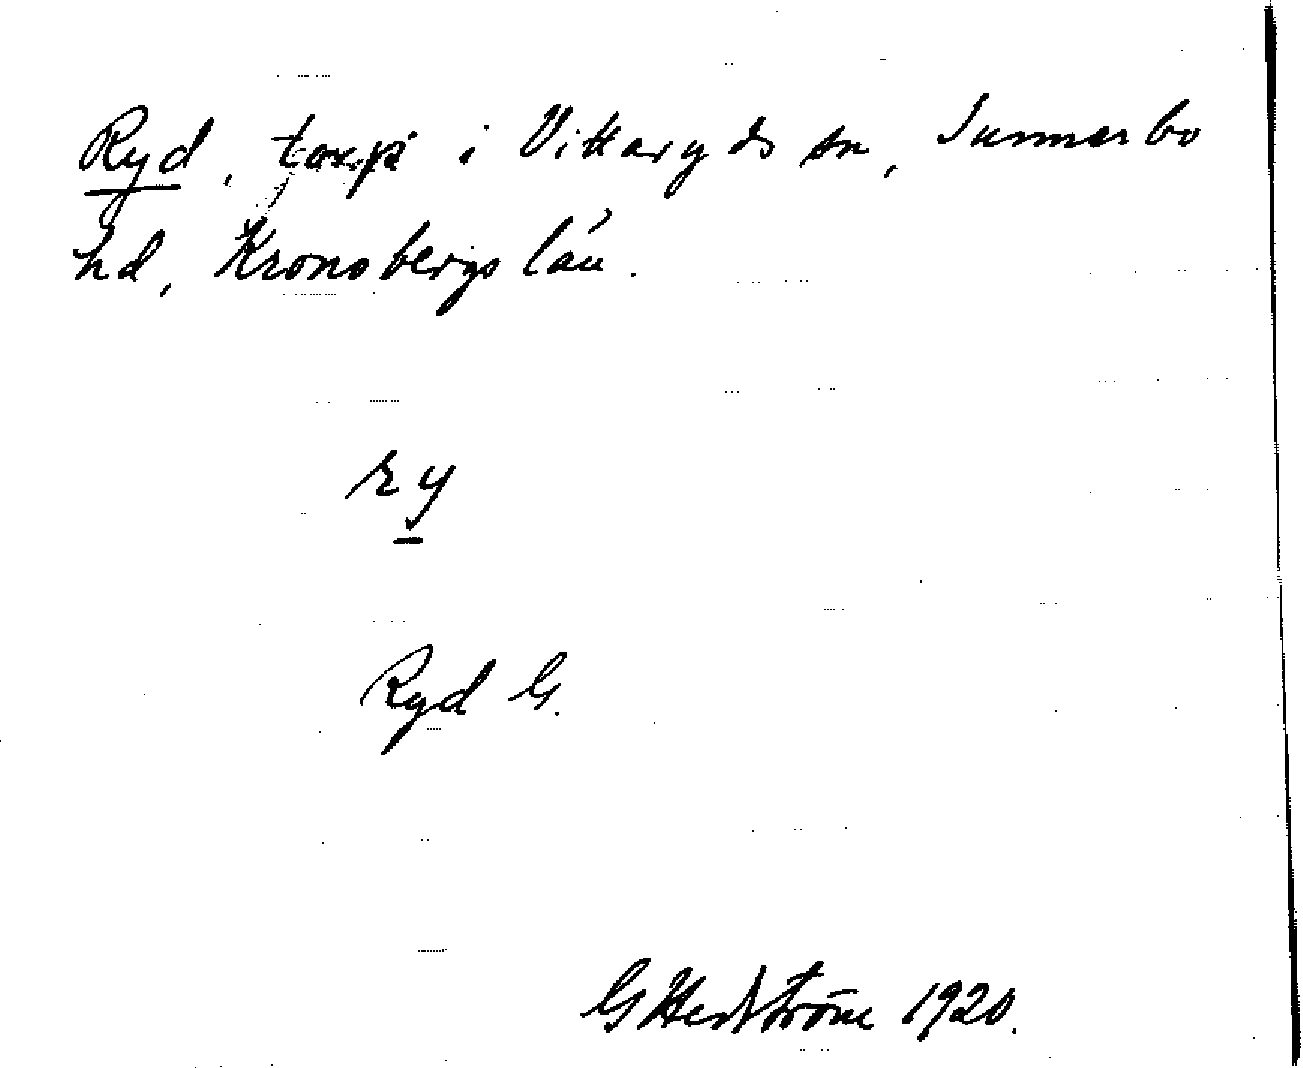 Ryd, torp i Vittaryds sn, Sunnerbo
hd, Kronobergs län.
ry
Ryd G.
G Hedström 1920.